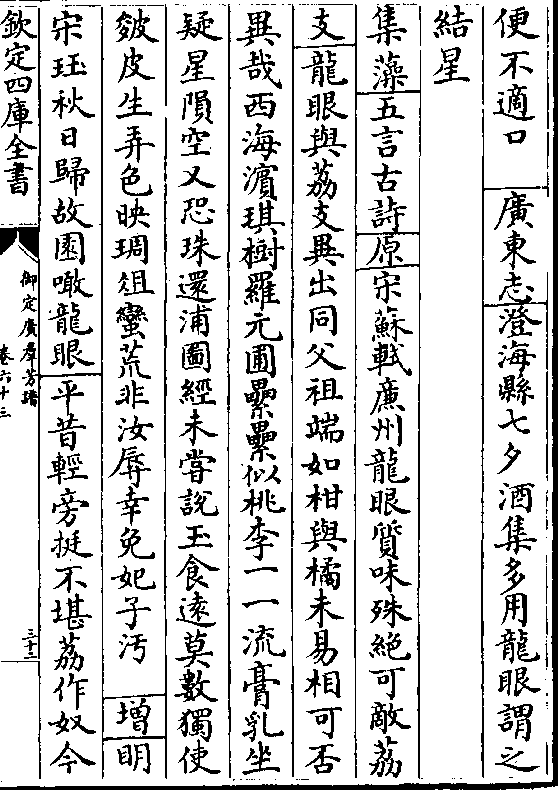 便不適口　廣東志澄海縣七夕酒集多用龍眼謂之
結星
集藻五言古詩原宋蘇軾㢘州龍眼質味殊絶可敵荔
支龍眼與荔支異出同父祖端如柑與橘未易相可否
異哉西海濵琪樹羅元圃纍纍似桃李一一流膏乳坐
疑星隕空又恐珠還浦圖經未嘗說玉食逺莫數獨使
皴皮生弄色映琱俎蠻荒非汝辱幸免妃子汚　增明
宋珏秋日歸故園噉龍眼平昔輕旁挺不堪荔作奴今
欽定四庫全書
御定廣羣芳譜
卷六十三
三十二